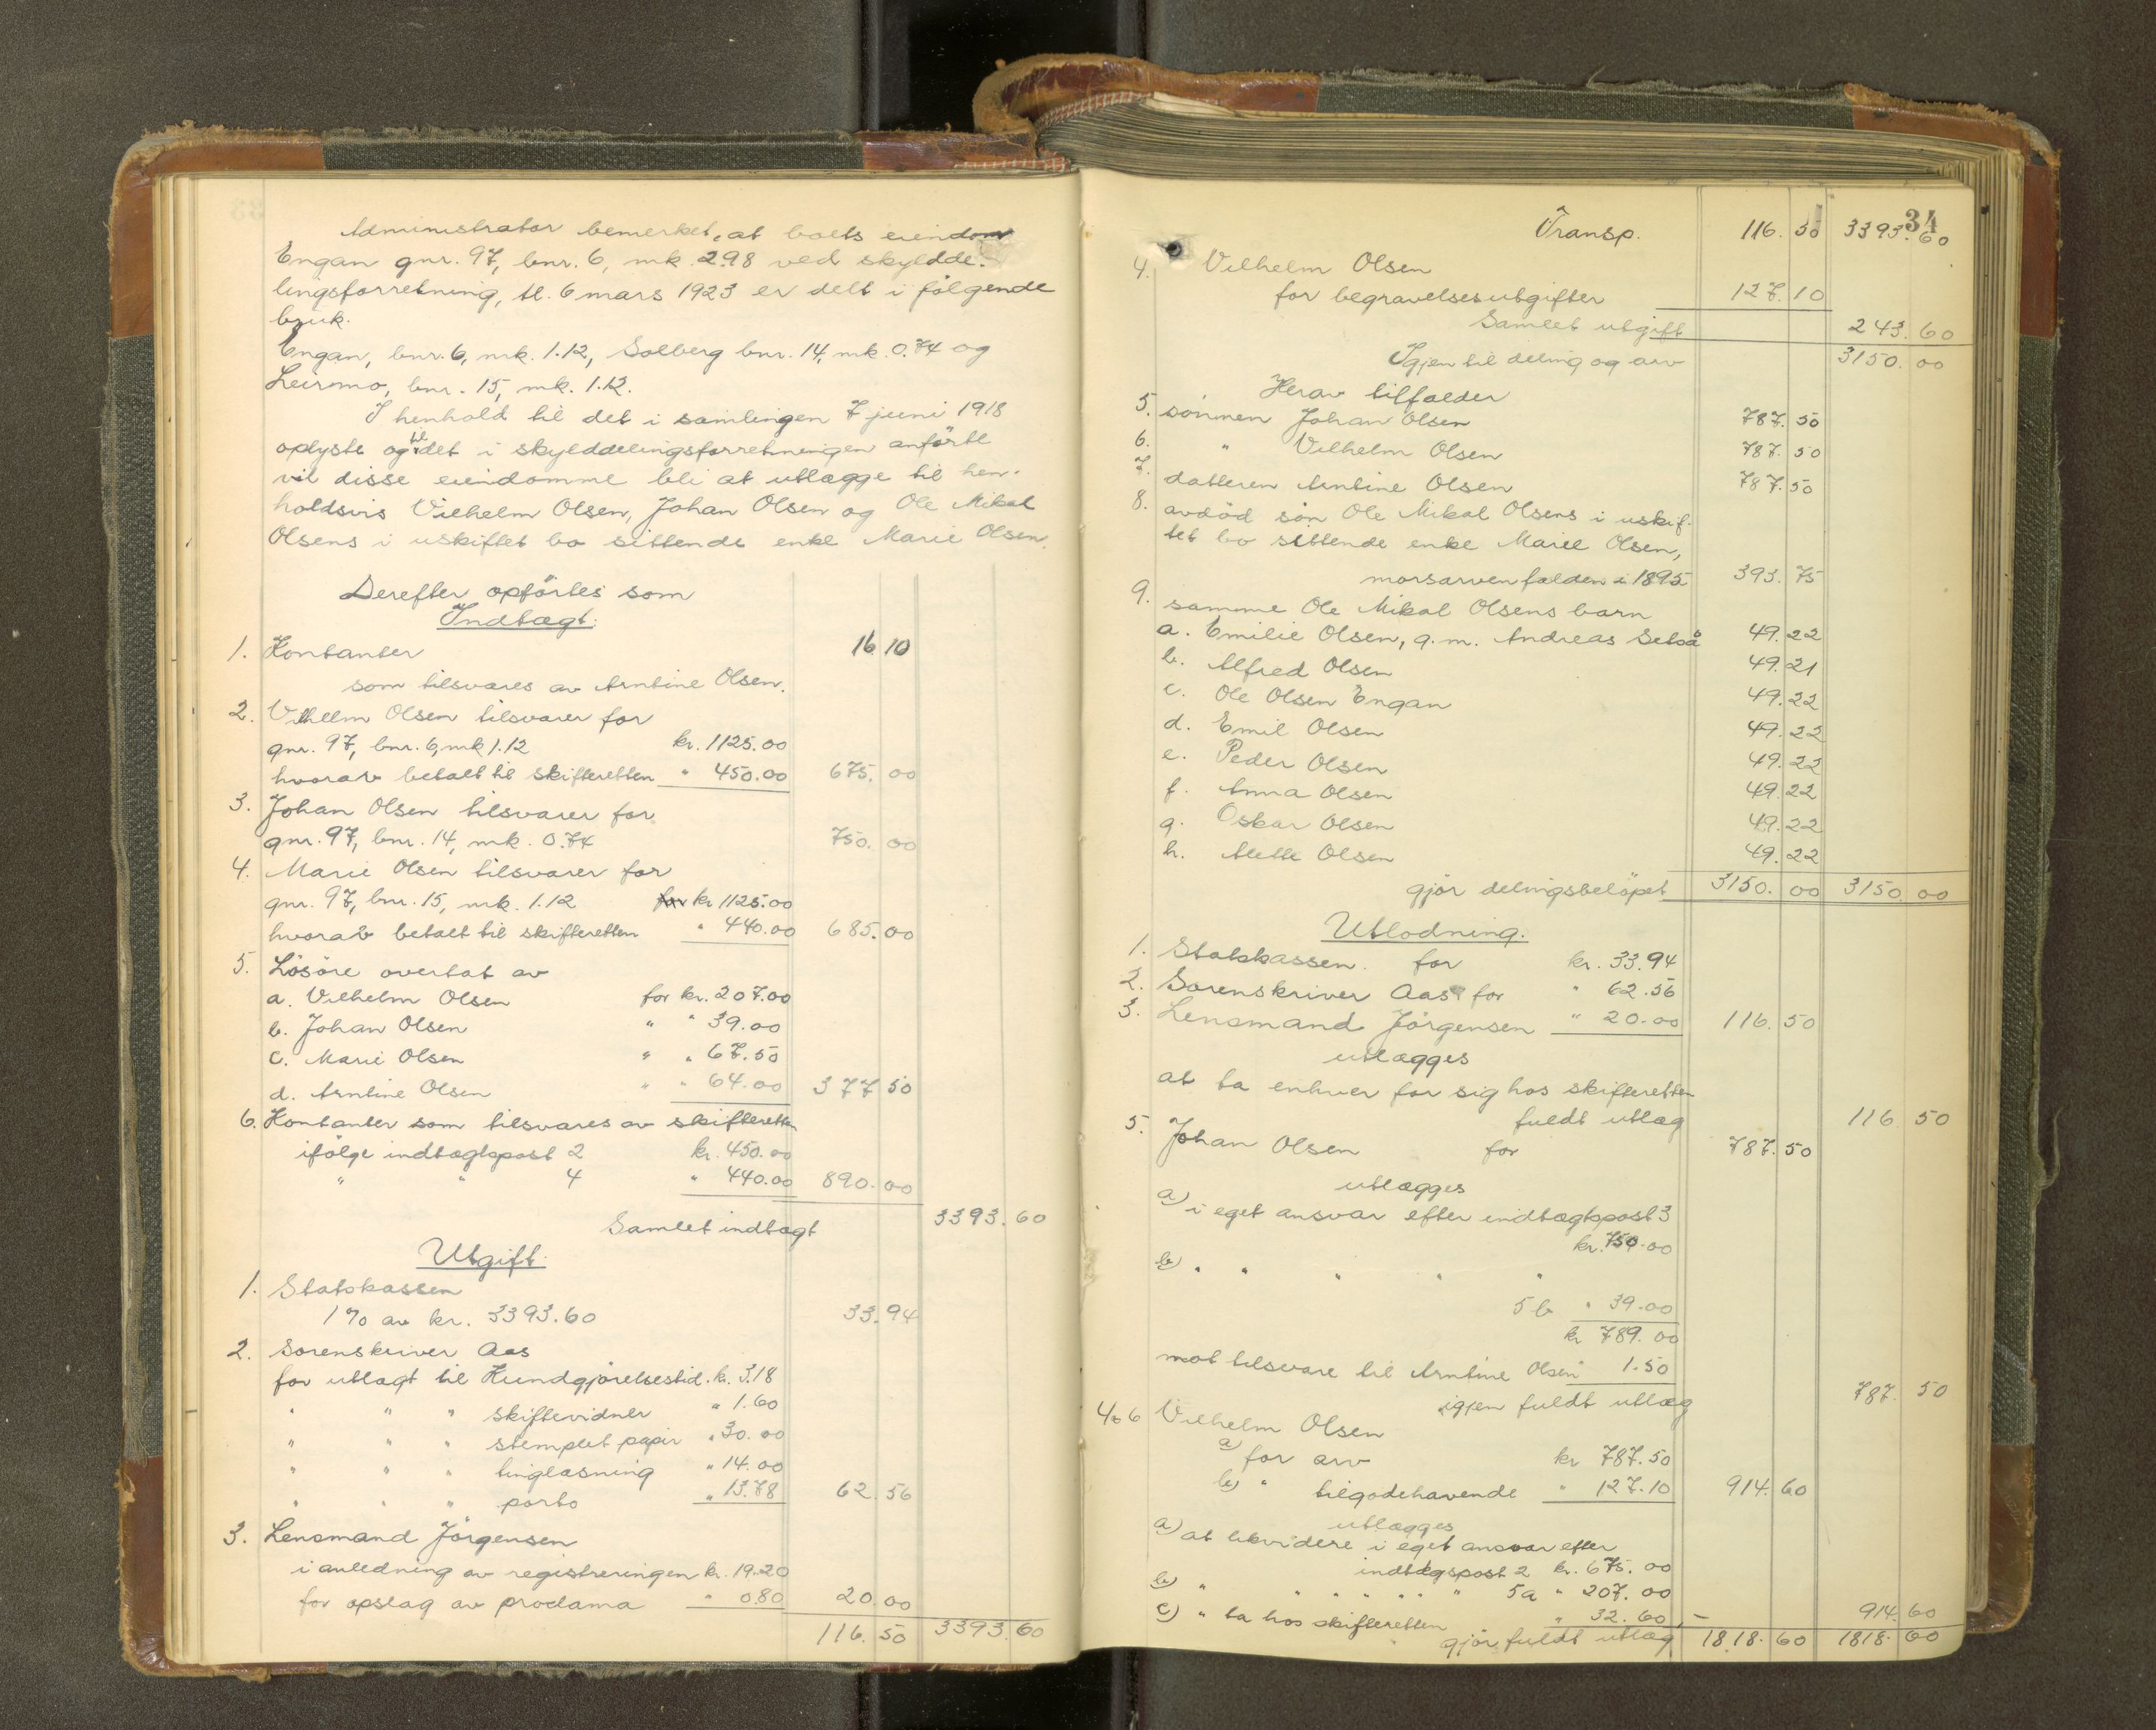 Administrator bemerket, at boets eiendom
Engan gnr. 97, bnr. 6, mk. 2.98 ved skyldde-
lingsforretning, tl. 6 mars 1923 er delt i følgende
bruk.
Engan, bnr. 6, mk. 1.12, Solberg bnr. 14, mk. 0.74 og
Leirmo, bnr. 15, mk. 1.12.
I henhold til det i samlingen 7 juni 1918
oplyste og til det i skylddelingsforretningen anförte
vil disse eiendomme bli at utlægge til hen-
holdsvis Vilhelm Olsen, Johan Olsen og Ole Mikal
Olsens i uskiftet bo sittende enke Marie Olsen.
Derefter opförtes som
Indtægt:
1. Kontanter 16 10
som tilsvares av Arntine Olsen.
2. Vilhelm Olsen tilsvarer for
gnr. 97, bnr. 6, mk 1.12 kr. 1125.00
hvorav betalt til skifteretten " 450.00 675. 00
3. Johan Olsen tilsvarer for
gnr. 97, bnr. 14, mk. 0.74 750. 00
4. Marie Olsen tilsvarer for
gnr. 97, bnr. 15, mk. 1.12 for kr 1125.00
hvorav betalt til skifteretten " 440.00 685.00
5. Lösöre overtat av
a. Vilhelm Olsen for kr. 207.00
b. Johan Olsen " " 39.00
c. Marie Olsen " " 67.50
d. Arntine Olsen " " 64.00 377 50
6. Kontanter som tilsvares av skifteretten
ifölge indtægtspost 2 kr. 450.00
" " 4 " 440.00 890. 00
Samlet indtægt 3393. 60
Utgift:
1. Statskassen
1% av kr. 3393.60 33.94
2. Sorenskriver Aas
for utlagt til Kundgjörelsestid. kr. 3.18
" " " skiftevidner " 1.60
" " " stemplet papir " 30.00
" " " tinglæsning " 14.00
" " " porto " 13.78 62. 56
3. Lensmand Jörgensen
i anledning av registreringen kr. 19.20
for opslag av proclama " 0.80 20.00
116. 50 3393. 60
34
Transp. 116. 50 3393. 60
4. Vilhelm Olsen
for begravelsesutgifter 127. 10
Samlet utgift 243. 60
Igjen til deling og arv 3150. 00
Herav tilfalder
5. sönnen Johan Olsen 787. 50
6. " Vilhelm Olsen 787. 50
7. datteren Arntine Olsen 787. 50
8. avdöd sön Ole Mikal Olsens i uskif-
tet bo sittende enke Marie Olsen,
morsarven falden i 1895 393. 75
9. samme Ole Mikal Olsens barn
a. Emilie Olsen, g. m. Andreas Setså 49. 22
b. Alfred Olsen 49. 21
c. Ole Olsen Engan 49. 22
d. Emil Olsen 49. 22
e. Peder Olsen 49. 22
f. Anna Olsen 49. 22
g. Oskar Olsen 49. 22
h. Mette Olsen 49. 22
gjör delingsbelöpet 3150. 00 3150. 00
Utlodning:
1. Statskassen for kr. 33.94
2. Sorenskriver Aas for " 62.56
3. Lensmand Jörgensen " 20.00 116. 50
utlægges
at ta enhver for sig hos skifteretten
fuldt utlæg 116 50
5. Johan Olsen for 787. 50
utlægges
a) i eget ansvar efter indtægtspost 3
kr. 750.00
b) " " " " "
5 b " 39.00
kr 789.00
mot tilsvare til Arntine Olsen " 1.50
igjen fuldt utlæg 787. 50
4 o 6 Vilhelm Olsen
a) for arv kr 787.50
b) " tilgodehavende " 127.10 914. 60
utlægges
a) at likvidere i eget ansvar efter
indtægspost 2 kr. 675.00
b) " " " " " " 5a " 207.00
c) " ta hos skifteretten " 32.60 -
914. 60
gjör fuldt utlæg 1818. 60 1818. 60